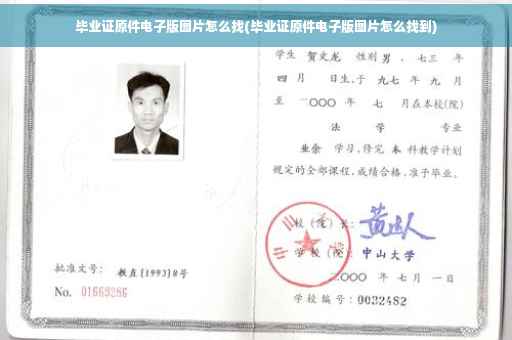 毕业证原件电子版图片怎么找(毕业证原件电子版图片怎么找到)
学生 贺文龙 性别 男 、七三 年
四 月 日生,于 九七 年 九 月
至 二〇〇〇 年 七 月在本校(院)
法 学 专业
业余 学习,修完 本 科教学计划
规定的全部课程,成绩合格,准予毕业。
校(院)长:
学校(院): 中山大学
二〇〇〇 年 七 月 一 日
学校编号: 0032482
批准文号: 教直(1993)8号
No. 01669286